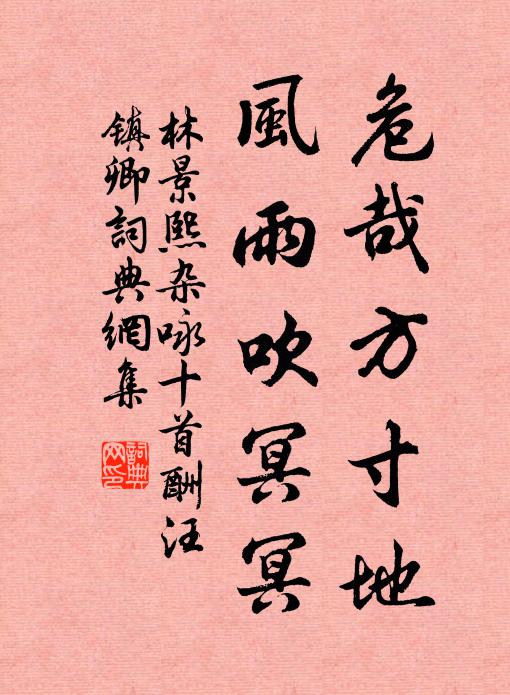 危哉方寸地
風雨吹冥冥
林景熙杂咏十首酬汪
镇卿詞典網集
詞典
网印